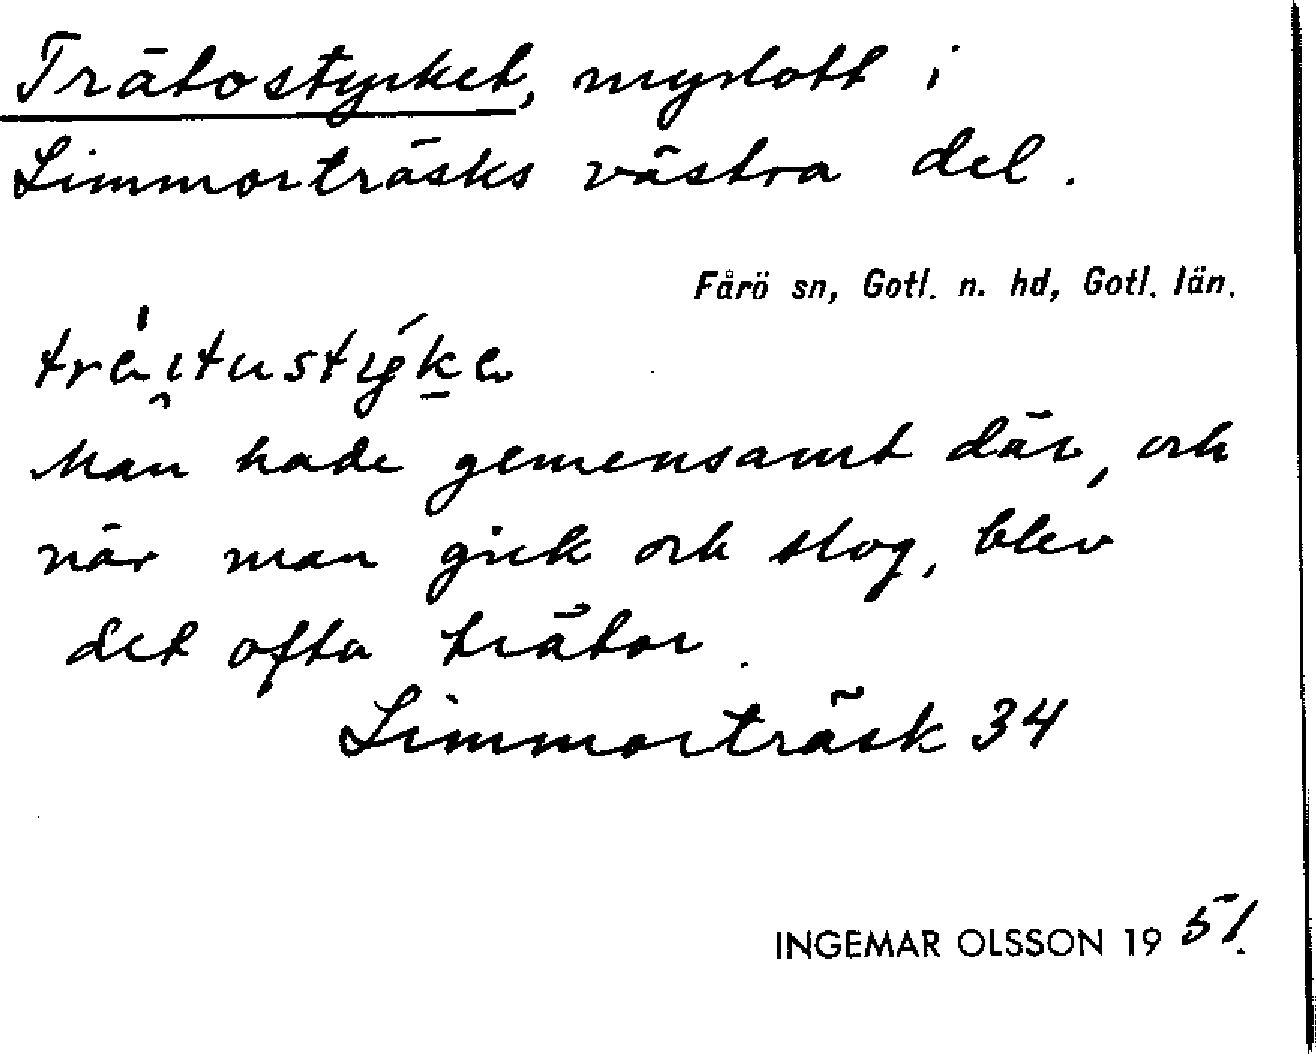 Trätostycket, myrlott i
Limmorträsks västra del.
Fårö sn, Gotl. n. hd, Gotl. län.
Man hade gemensamt där, och
när man gick och slog, blev
det ofta trätor.
Limmorträsk 34
INGEMAR OLSSON 1951.